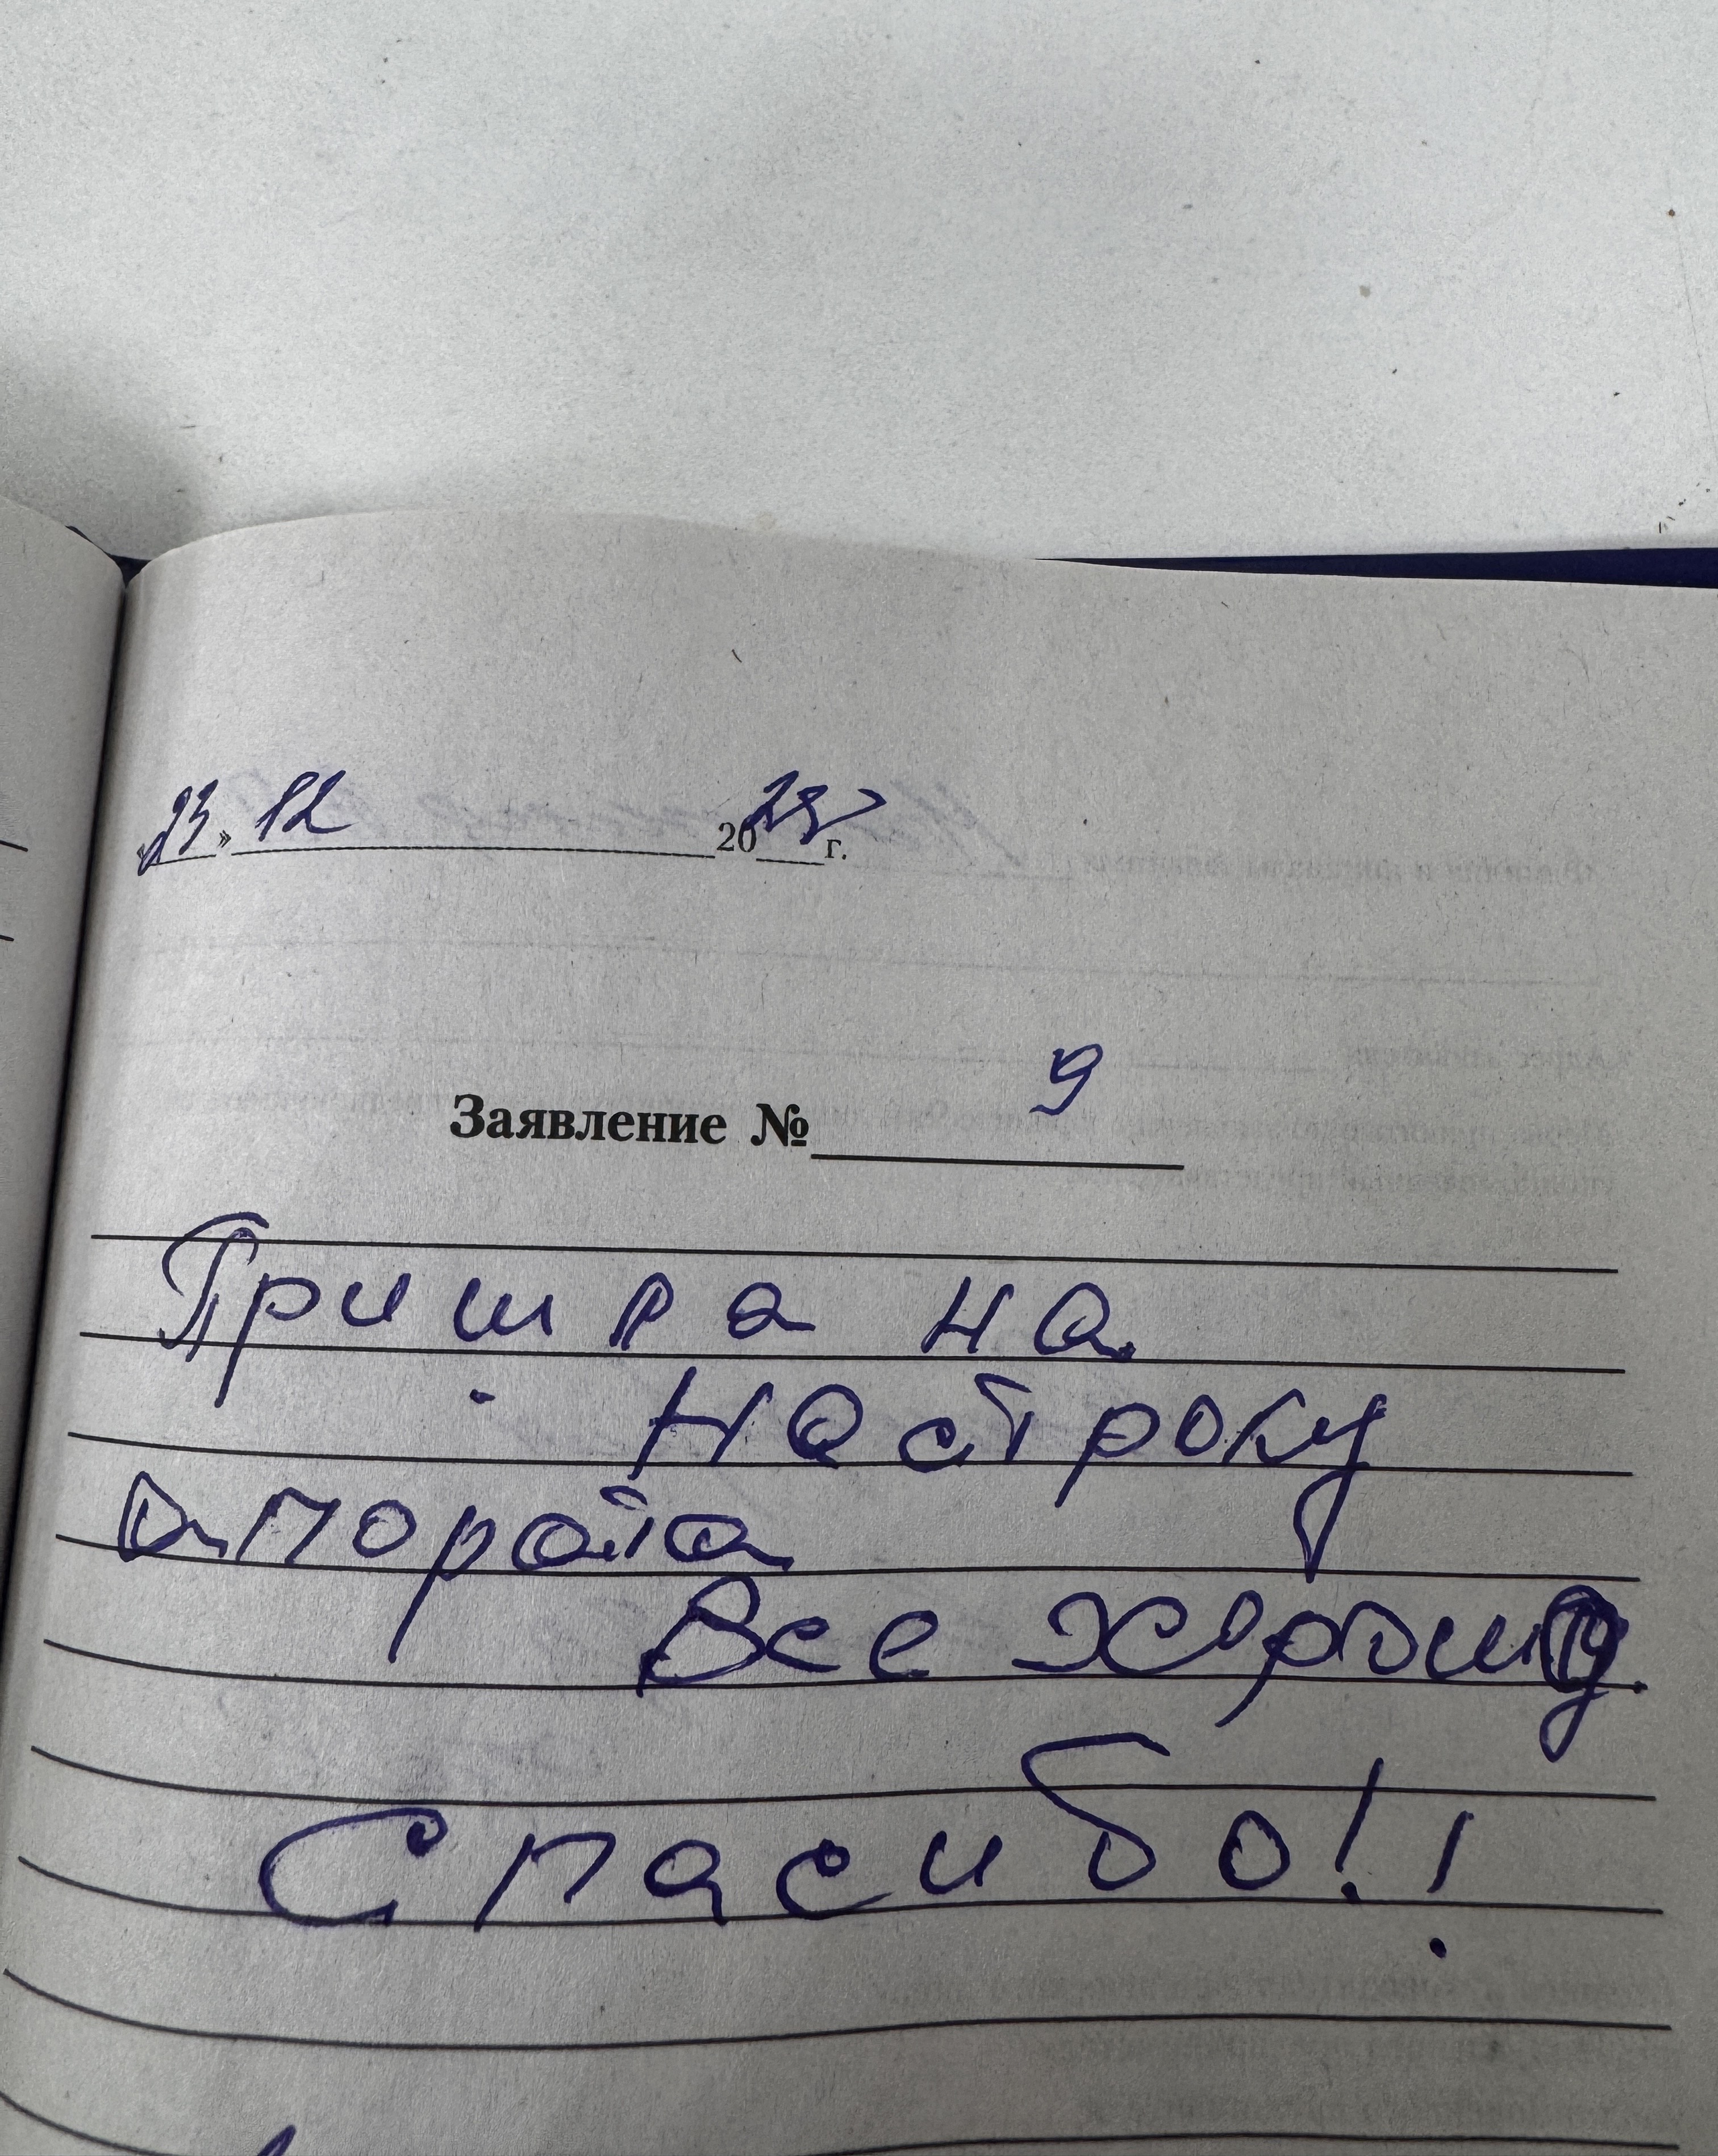 «23» 12 2025 г.
Заявление № 9
Пришла на
настроку
апората
Все хорошо.
Спасибо!!